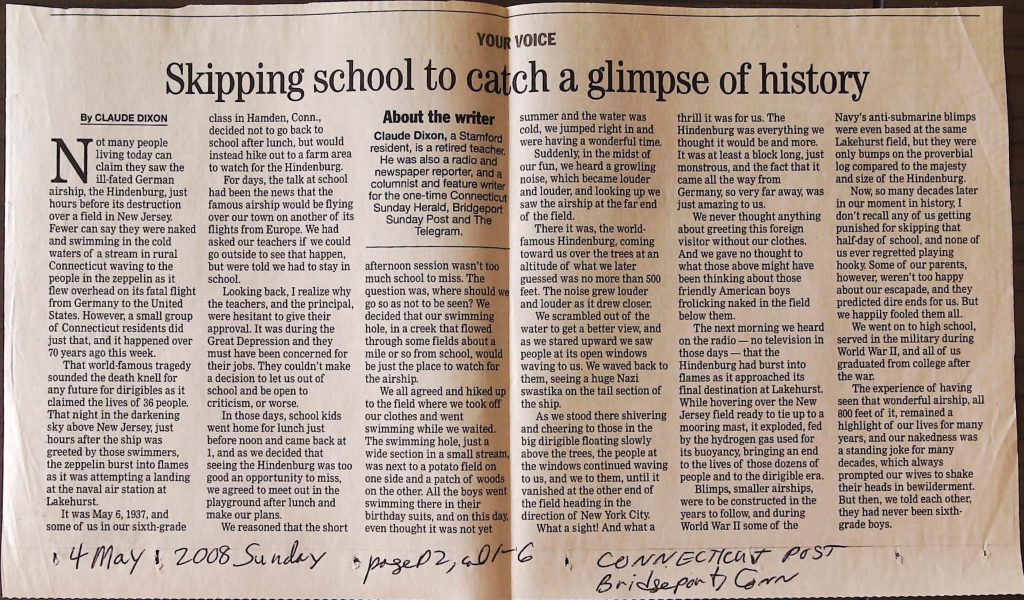 YOUR VOICE
Skipping school to catch a glimpse of history
By CLAUDE DIXON
Not many people
living today can
claim they saw the
ill-fated German
airship, the Hindenburg, just
hours before its destruction
over a field in New Jersey.
Fewer can say they were naked
and swimming in the cold
waters of a stream in rural
Connecticut waving to the
people in the zeppelin as it
flew overhead on its fatal flight
from Germany to the United
States. However, a small group
of Connecticut residents did
just that, and it happened over
70 years ago this week.
That world-famous tragedy
sounded the death knell for
any future for dirigibles as it
claimed the lives of 36 people.
That night in the darkening
sky above New Jersey, just
hours after the ship was
greeted by those swimmers,
the zeppelin burst into flames
as it was attempting a landing
at the naval air station at
Lakehurst.
It was May 6, 1937, and
some of us in our sixth-grade
class in Hamden, Conn.,
decided not to go back to
school after lunch, but would
instead hike out to a farm area
to watch for the Hindenburg.
For days, the talk at school
had been the news that the
famous airship would be flying
over our town on another of its
flights from Europe. We had
asked our teachers if we could
go outside to see that happen,
but were told we had to stay in
school.
Looking back, I realize why
the teachers, and the principal,
were hesitant to give their
approval. It was during the
Great Depression and they
must have been concerned for
their jobs. They couldn't make
a decision to let us out of
school and be open to
criticism, or worse.
In those days, school kids
went home for lunch just
before noon and came back at
1, and as we decided that
seeing the Hindenburg was too
good an opportunity to miss,
we agreed to meet out in the
playground after lunch and
make our plans.
We reasoned that the short
About the writer
Claude Dixon, a Stamford
resident, is a retired teacher.
He was also a radio and
newspaper reporter, and a
columnist and feature writer
for the one-time Connecticut
Sunday Herald, Bridgeport
Sunday Post and The
Telegram.
afternoon session wasn't too
much school to miss. The
question was, where should we
go so as not to be seen? We
decided that our swimming
hole, in a creek that flowed
through some fields about a
mile or so from school, would
be just the place to watch for
the airship.
We all agreed and hiked up
to the field where we took off
our clothes and went
swimming while we waited.
The swimming hole, just a
wide section in a small stream,
was next to a potato field on
one side and a patch of woods
on the other. All the boys went
swimming there in their
birthday suits, and on this day,
even thought it was not yet
summer and the water was
cold, we jumped right in and
were having a wonderful time.
Suddenly, in the midst of
our fun, we heard a growling
noise, which became louder
and louder, and looking up we
saw the airship at the far end
of the field.
There it was, the world-
famous Hindenburg, coming
toward us over the trees at an
altitude of what we later
guessed was no more than 500
feet. The noise grew louder
and louder as it drew closer.
We scrambled out of the
water to get a better view, and
as we stared upward we saw
people at its open windows
waving to us. We waved back to
them, seeing a huge Nazi
swastika on the tail section of
the ship.
As we stood there shivering
and cheering to those in the
big dirigible floating slowly
above the trees, the people at
the windows continued waving
to us, and we to them, until it
vanished at the other end of
the field heading in the
direction of New York City.
What a sight! And what a
thrill it was for us. The
Hindenburg was everything we
thought it would be and more.
It was at least a block long, just
monstrous, and the fact that it
came all the way from
Germany, so very far away, was
just amazing to us.
We never thought anything
about greeting this foreign
visitor without our clothes.
And we gave no thought to
what those above might have
been thinking about those
friendly American boys
frolicking naked in the field
below them.
The next morning we heard
on the radio — no television in
those days — that the
Hindenburg had burst into
flames as it approached its
final destination at Lakehurst.
While hovering over the New
Jersey field ready to tie up to a
mooring mast, it exploded, fed
by the hydrogen gas used for
its buoyancy, bringing an end
to the lives of those dozens of
people and to the dirigible era.
Blimps, smaller airships,
were to be constructed in the
years to follow, and during
World War II some of the
Navy's anti-submarine blimps
were even based at the same
Lakehurst field, but they were
only bumps on the proverbial
log compared to the majesty
and size of the Hindenburg.
Now, so many decades later
in our moment in history, I
don't recall any of us getting
punished for skipping that
half-day of school, and none of
us ever regretted playing
hooky. Some of our parents,
however, weren't too happy
about our escapade, and they
predicted dire ends for us. But
we happily fooled them all.
We went on to high school,
served in the military during
World War II, and all of us
graduated from college after
the war.
The experience of having
seen that wonderful airship, all
800 feet of it, remained a
highlight of our lives for many
years, and our nakedness was
a standing joke for many
decades, which always
prompted our wives to shake
their heads in bewilderment.
But then, we told each other,
they had never been sixth-
grade boys.
4 May 2008 Sunday page D2, col 1-6 CONNECTICUT POST
Bridgeport, Conn